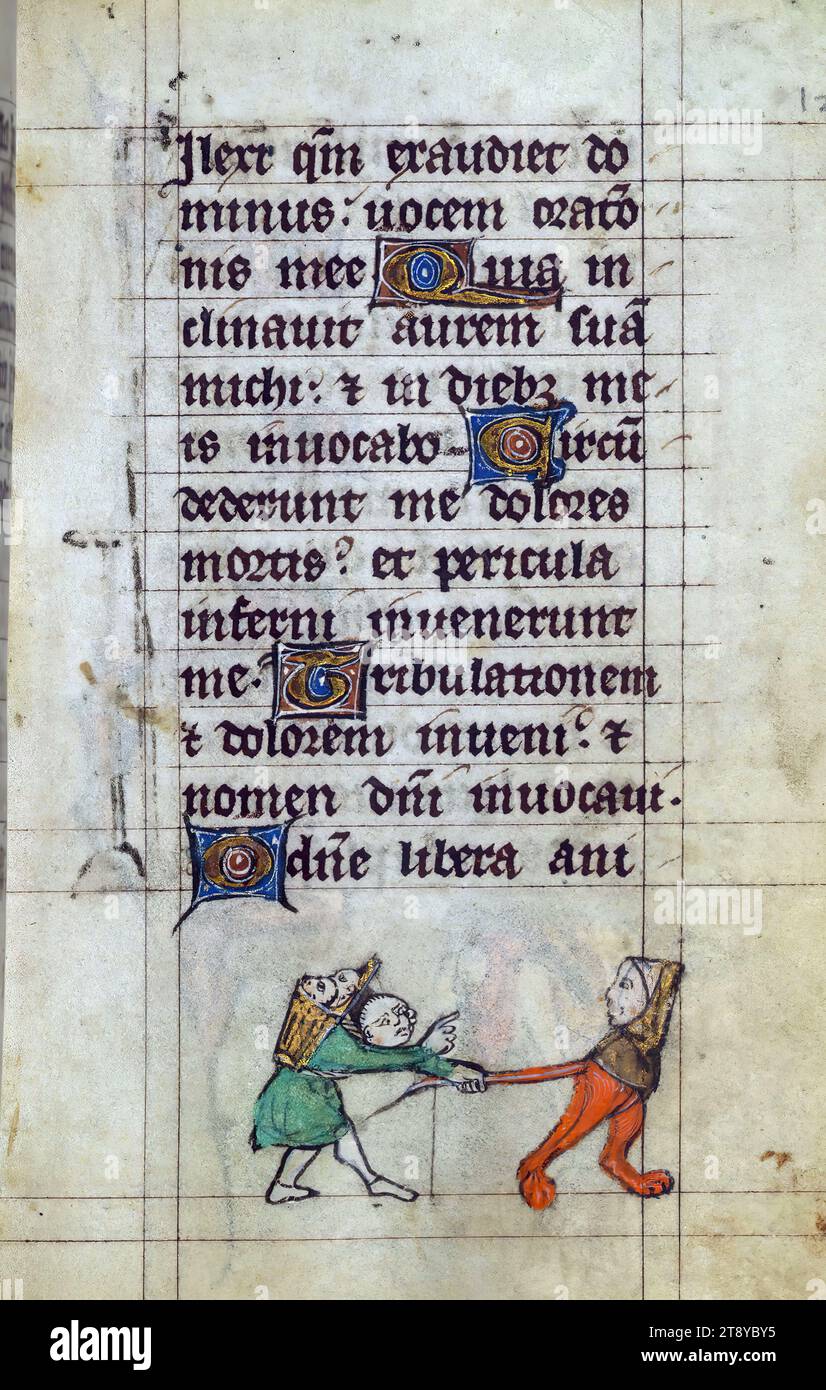 Ilexi qm̄ exaudiet do
minus: uocem orat̄o
nis mee Quia in
clinauit aurem suā
michi: ⁊ in dieb; me
is inuocabo Circū
dederunt me dolores
mortis: et pericula
inferni inuenerunt
me. Tribulationem
⁊ dolorem inueni: ⁊
nomen dn̄i inuocaui.
O dn̄e libera ani
alamy
Image ID: 2T8YBY5
www.alamy.com